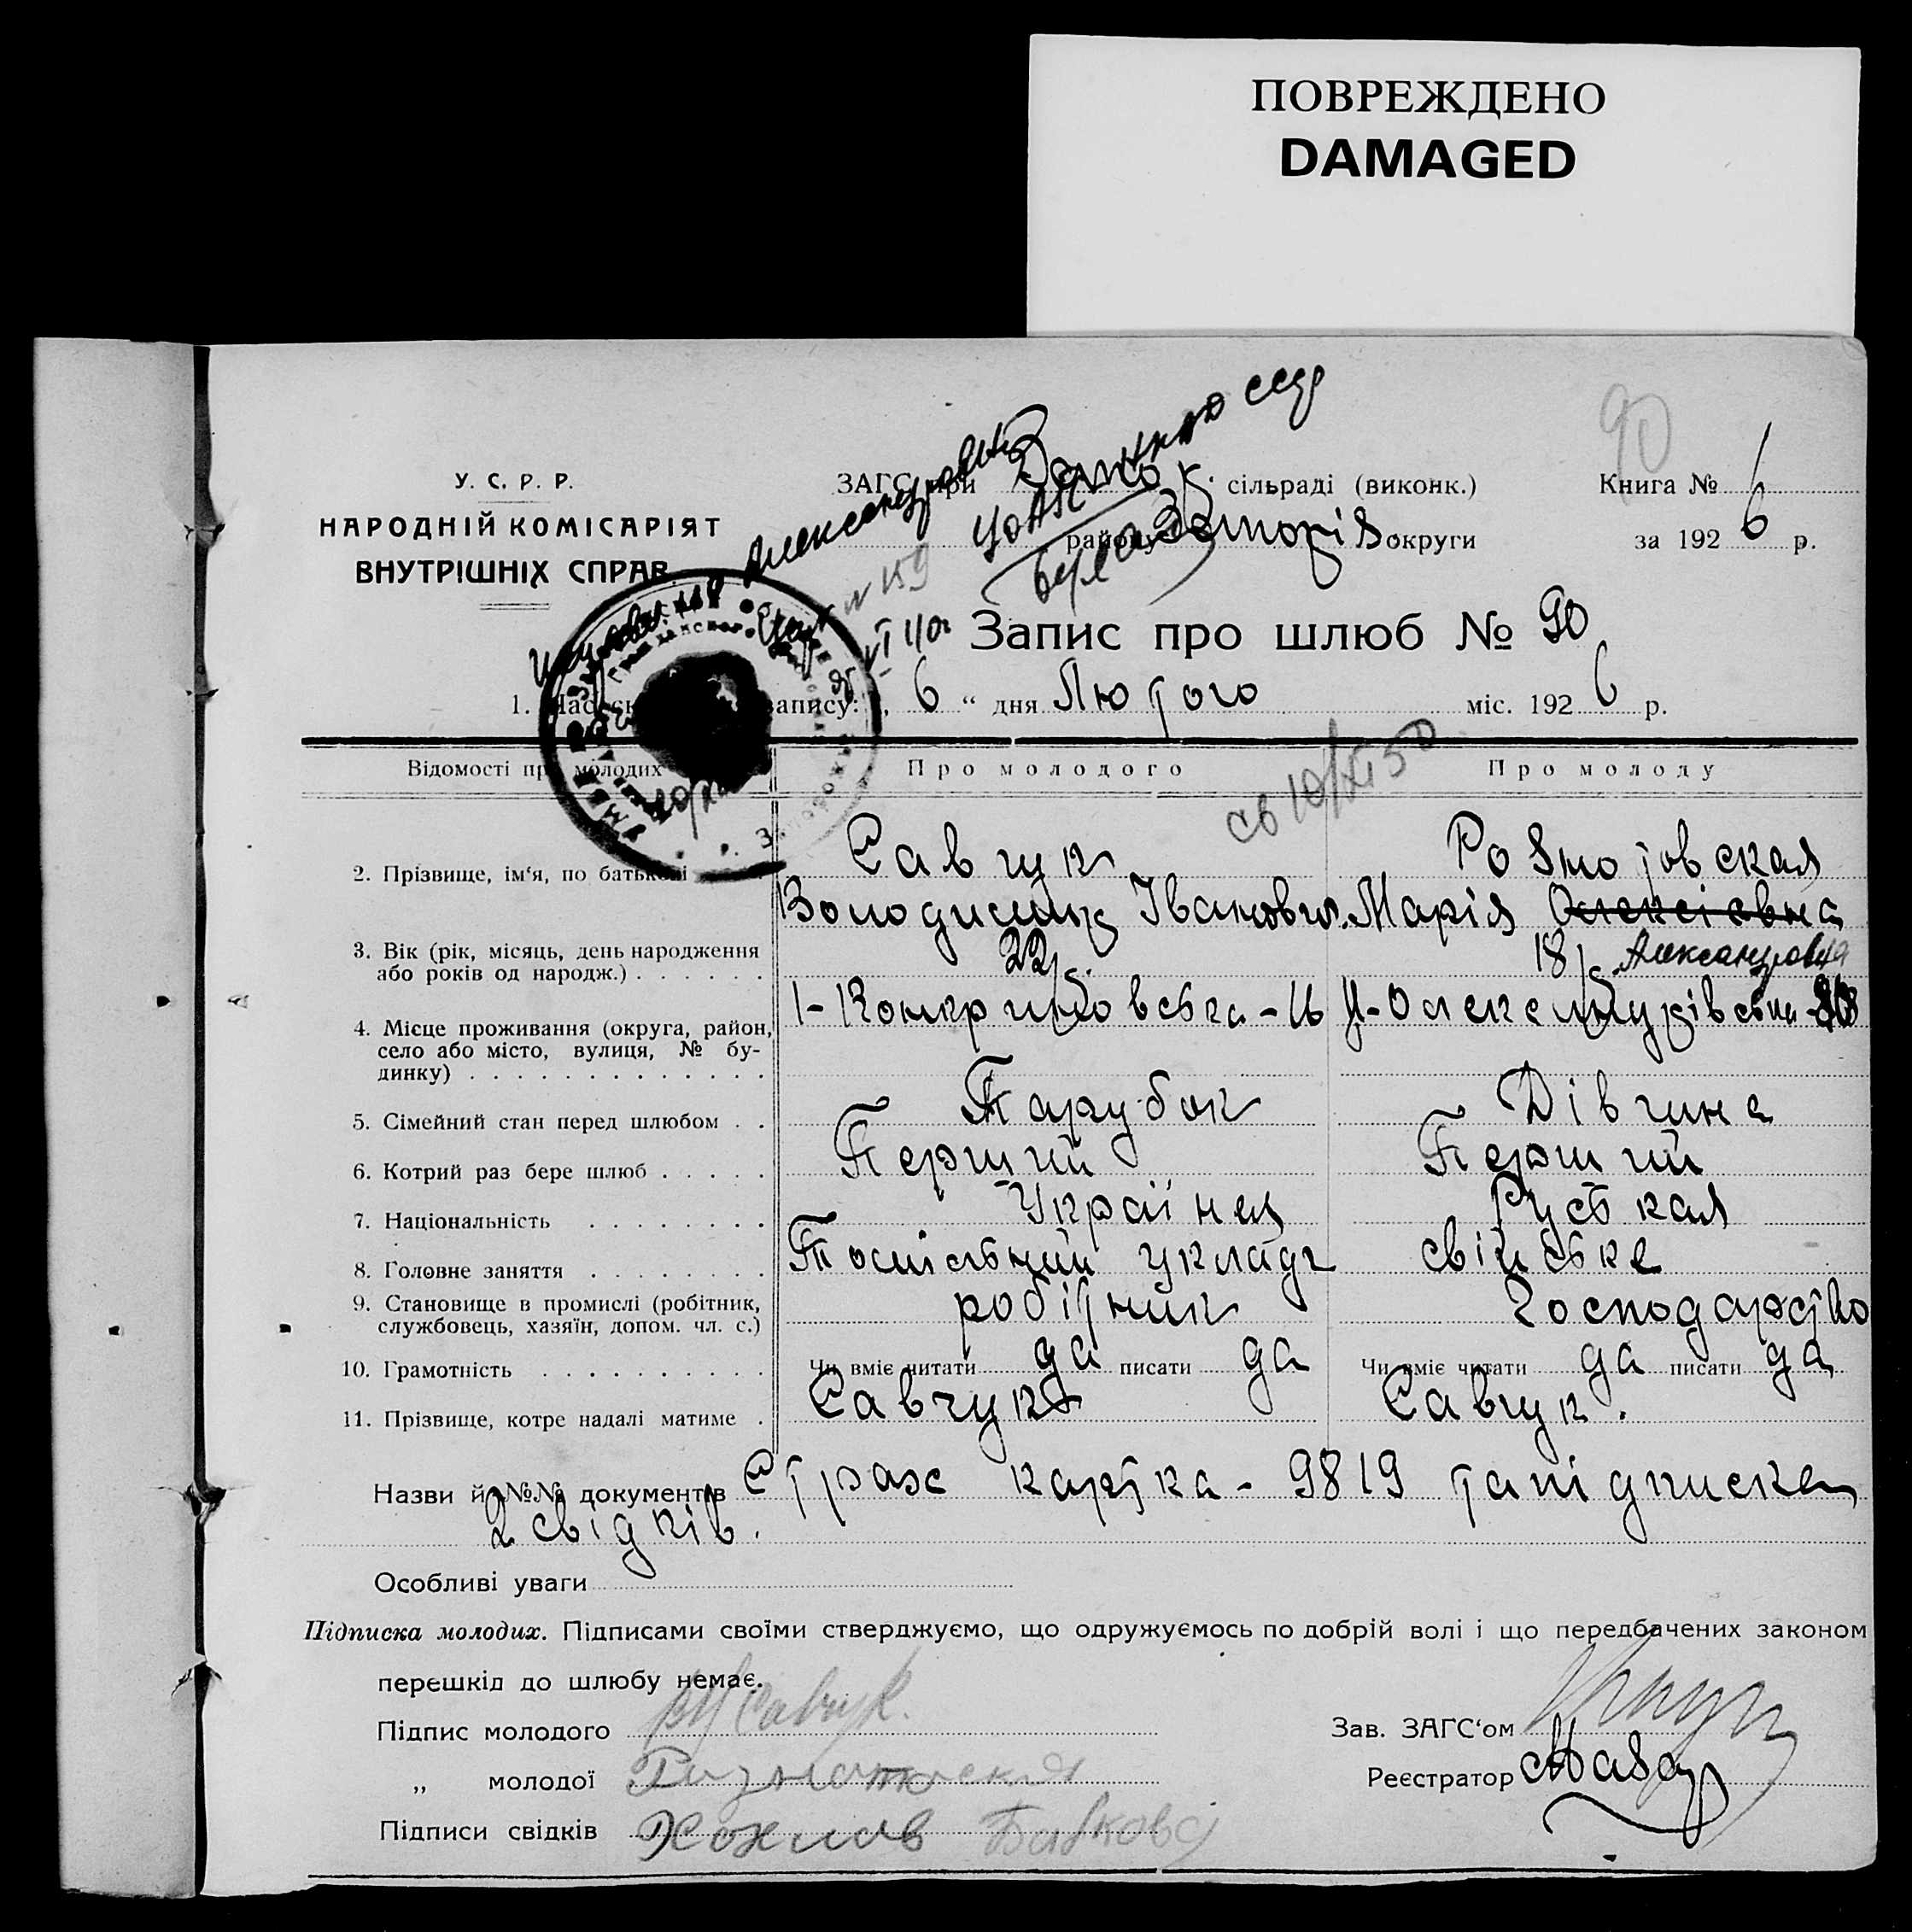 ПОВРЕЖДЕНО
DAMAGED
90
У. С. Р. Р.
НАРОДНІЙ КОМІСАРІЯТ
ВНУТРІШНІХ СПРАВ.
ЗАГС при сільраді (виконк.)
району Запоріз округи
Книга № 6
за 1926 р.
Александровна
№ 159
Запис про шлюб № 90
1. Час запису: „ 6 “ дня Лютого міс. 1926 р.
Відомості про молодих
Про молодого
Про молоду
св 10/XI 50
2. Прізвище, ім‘я, по батькові
Савчук
Володимир Іванович
Розмотовская
Марія Олексіевна
Александровна
3. Вік (рік, місяць, день народження
або років од народж.)
22 р.
18 р.
4. Місце проживання (округа, район,
село або місто, вулиця, № бу-
динку)
5. Сімейний стан перед шлюбом
Парубок
Дівчина
6. Котрий раз бере шлюб
Перший
Перший
7. Національність
Українец
Руськая
8. Головне заняття
свійське
9. Становище в промислі (робітник,
службовець, хазяїн, допом. чл. с.)
робітник
господарство
10. Грамотність
Чи вміє читати да писати да
Чи вміє читати да писати да
11. Прізвище, котре надалі матиме
Савчук
Савчук.
Назви й №№ документів Страх картка - 9819 та підписка
2 свідків.
Особливі уваги
Підписка молодих. Підписами своїми стверджуємо, що одружуємось по добрій волі і що передбачених законом
перешкід до шлюбу немає.
Підпис молодого ВИ Савчук.
„ молодої
Підписи свідків Хохлов
Зав. ЗАГС‘ом
Реєстратор Мазар